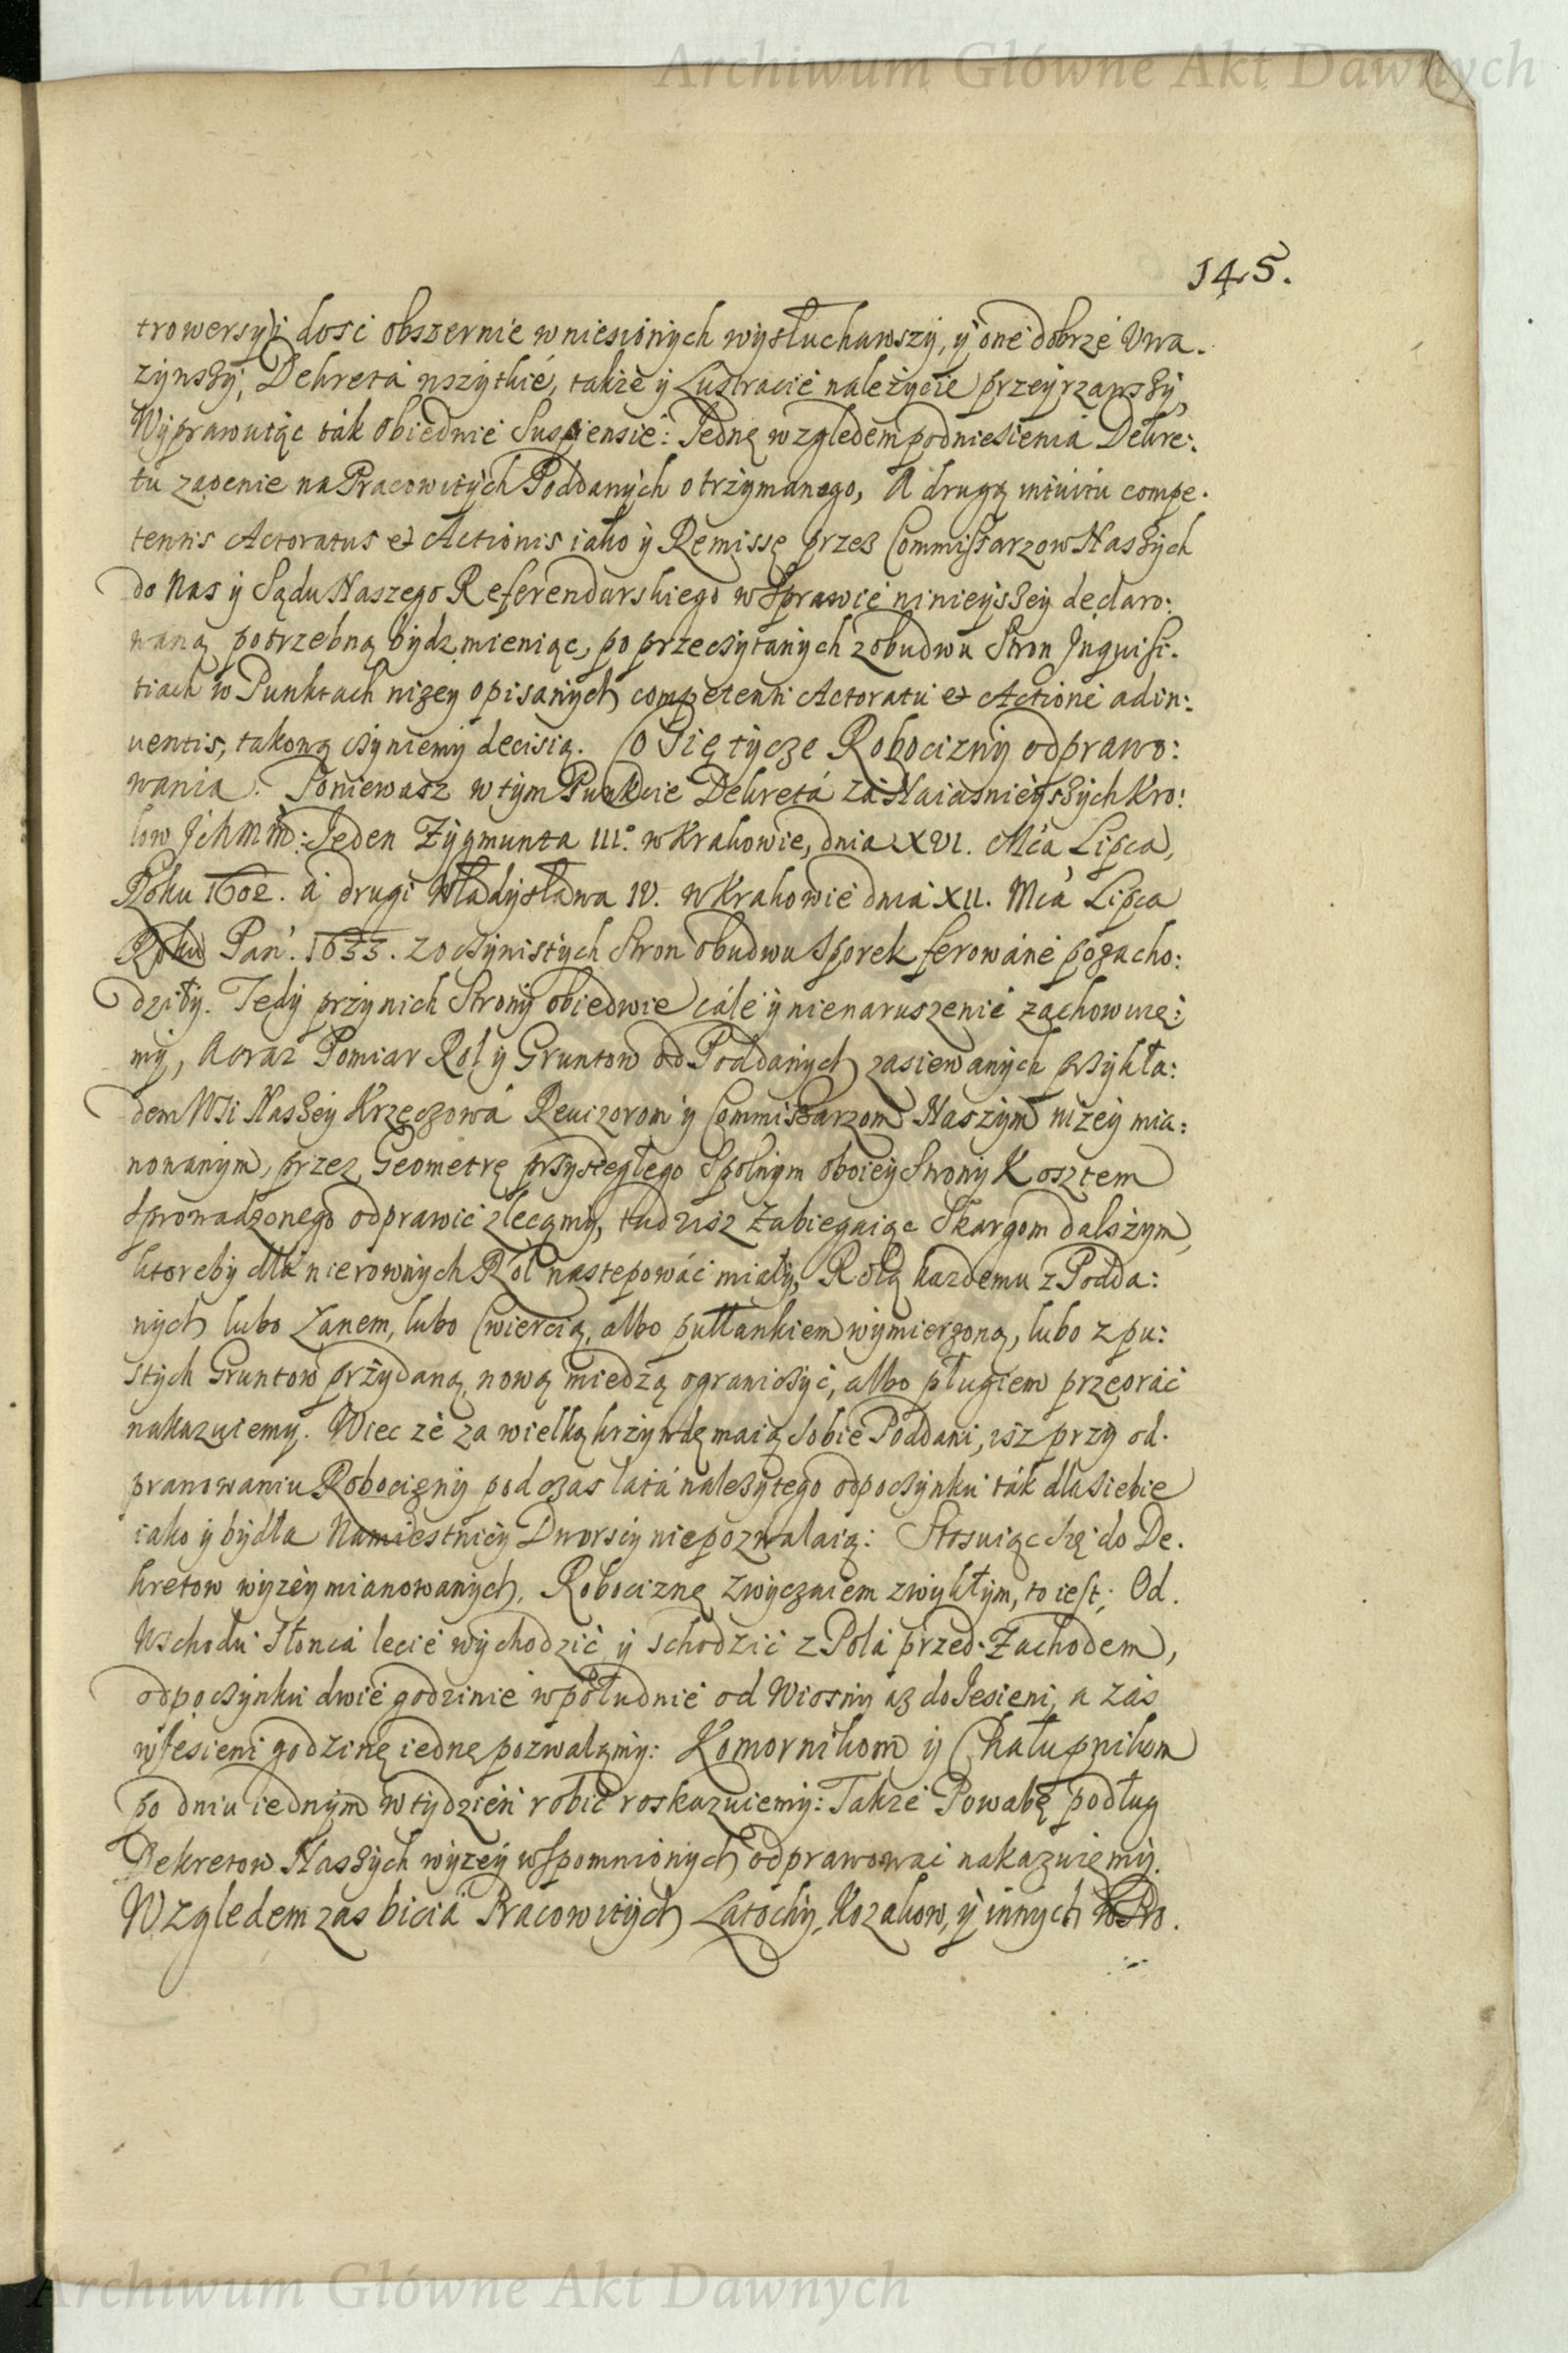 Archiwum Główne Akt Dawnych
145.
trowersyi dosć obszernie wniesionych wysłuchawszy, y one dobrze Uwa.
zywszy, Dekreta wszytkie, także y Lustracie należycie przeyrzawszy,
Wyprawuiąc tak obiednie Suspensie: Jednę względem podniesienia Dekre:
tu zaocznie na Pracowitych Poddanych otrzymanego, A drugą intuitu compe.
tentis Actoratus et Actionis iako y Remissę przez Commissarzow Naszych
do Nas y Sądu Naszego Referendarskiego w Sprawie ninieyszey declaro:
waną potrzebną bydz mieniąc, po przeczytanych z obudwu Stron Inquisi.
tiach w Punktach niżey opisanych competenti Actoratu et Actione adin:
uentis, takową czyniemy decisią. Co Się tycze Robocizny odprawo:
wania. Poniewasz w tym Punkcie Dekreta za Naiasnieyszych Kro:
low Ichmm: Jeden Zygmunta III.º w Krakowie, dnia XVI. Mca Lipca,
Roku 1602. a drugi Władysława IV. w Krakowie dnia XII. Mca Lipca
Roku Pań. 1633. z oczywistych Stron obudwu Sporek ferowane pozacho:
dziły. Tedy przy nich Strony obiedwie cale y nienaruszenie zachowuie:
my, A oraz Pomiar Rol y Gruntow od Poddanych zasiewanych przykła:
dem Wsi Naszey Krzęczowa Reuizorom y Commissarzom Naszym niżey mia:
nowanym, przez Geometrę przysięgłego Spolnym oboiey Strony Kosztem
Sprowadzonego odprawić zlecamy, tudziesz Zabiegaiąc Skargom dalszym,
ktoreby dla nierownych Rol nastepować miały, Rolą kazdemu z Podda:
nych lubo Łanem, lubo Cwiercią, albo pułłankiem wymierzoną, lubo z pu:
stych Gruntow przydaną, nową miedzą ograniczyć, albo pługiem przeorać
nakazuiemy. Wiec że za wielką krzywdę maią Sobie Poddani, isz przy od.
prawowaniu Robocizny podczas lata należytego odpoczynku tak dla siebie
iako y bydła Namiestnicy Dworscy niepozwalaią: Stosuiąc Się do De.
kretow wyżey mianowanych, Robociznę Zwyczaiem zwykłym, to iest; Od.
Wschodu Słonca lecie wychodzić y schodzić z Pola przed Zachodem,
odpoczynku dwie godzinie w południe od Wiosny az do Jesieni, a zas
w Jesieni godzinę iednę pozwalamy: Komornikom y Chałupnikom
po dniu iednym w tydzien robić roskazuiemy: Takze Powabę podług
Dekretow Naszych wyzey wspomnionych odprawować nakazuiemy.
Względem zas bicia Pracowitych Latochy, Kozakow, y innych
Archiwum Główne Akt Dawnych